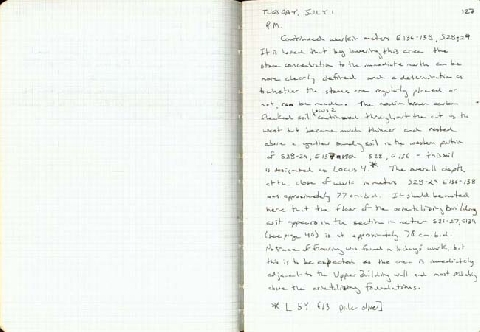 TUESDAY, JULY 1 127
P.M.
Continued work in meters E136-138, S28-29.
It is hoped that by lowering this area the
stone concentration to the immediate north can be
more clearly defined and a determination as
to whether the stones are regularly placed or
not, can be made. The medium brown carbon
flecked soil continued throughout the cut to the
west but became much thinner and rested
above a sandy soil in the western portion
of S28-29,
is designated as Locus 4 * The overall depth
at the close of work in meters S28-29 E136-138
was approximately 77 cm b.d. It should be noted
here that the floor of the orientalizing building
as it appears in the section in meter
(see page 40) is at approximately 78 cm b.d.
of flooring was found in today's work, but
this is to be expected as the area is immediately
adjacent to the Upper Building wall and most likely
above the orientalizing foundations.